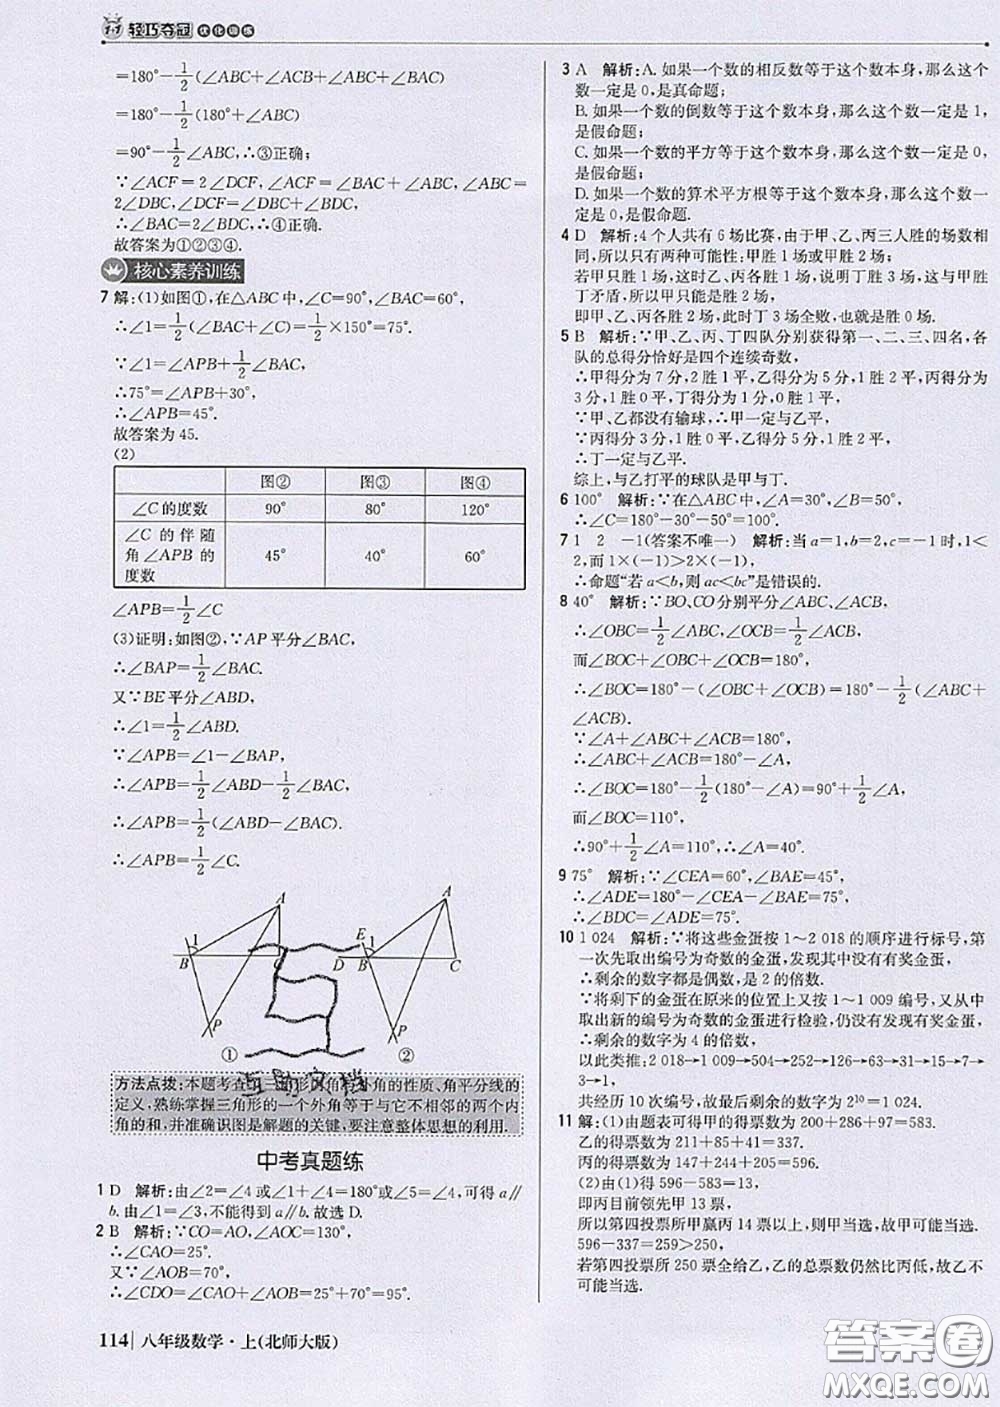 1+1 轻巧夺冠 优化训练
=180°-1/2(∠ABC+∠ACB+∠ABC+∠BAC)
=180°-1/2(180°+∠ABC)
=90°-1/2∠ABC,∴③正确;
∵∠ACF=2∠DCF,∠ACF=∠BAC+∠ABC,∠ABC=
2∠DBC,∠DCF=∠DBC+∠BDC,
∴∠BAC=2∠BDC,∴④正确.
故答案为①②③④.
核心素养训练
7 解:(1)如图①,在△ABC中,∠C=90°,∠BAC=60°,
∴∠1=1/2(∠BAC+∠C)=1/2×150°=75°.
∵∠1=∠APB+1/2∠BAC,
∴75°=∠APB+30°,
∴∠APB=45°.
故答案为45.
(2)
图② 图③ 图④
∠C的度数 90° 80° 120°
∠C 的 伴 随
角∠APB 的 45° 40° 60°
度数
∠APB=1/2∠C
(3)证明:如图②,∵AP平分∠BAC,
∴∠BAP=1/2∠BAC.
又∵BE平分∠ABD,
∴∠1=1/2∠ABD.
∵∠APB=∠1-∠BAP,
∴∠APB=1/2∠ABD-1/2∠BAC,
∴∠APB=1/2(∠ABD-∠BAC).
∴∠APB=1/2∠C.
A
1
B C
P
①
A
E
1
D B C
P
②
方法点拨:本题考查 三 形 角 外角的性质、角平分线的
定义,熟练掌握三角形的一个外角等于与它不相邻的两个内
角的和,并准确识图是解题的关键,要注意整体思想的利用.
中考真题练
1 D 解析:由∠2=∠4或∠1+∠4=180°或∠5=∠4,可得a∥
b.由∠1=∠3,不能得到a∥b.故选D.
2 B 解析:∵CO=AO,∠AOC=130°,
∴∠CAO=25°.
又∵∠AOB=70°,
∴∠CDO=∠CAO+∠AOB=25°+70°=95°.
3 A 解析:A.如果一个数的相反数等于这个数本身,那么这个
数一定是0,是真命题;
B.如果一个数的倒数等于这个数本身,那么这个数一定是1,
是假命题;
C.如果一个数的平方等于这个数本身,那么这个数一定是0,
是假命题;
D.如果一个数的算术平方根等于这个数本身,那么这个数一
定是0,是假命题.
4 D 解析:4个人共有6场比赛,由于甲、乙、丙三人胜的场数相
同,所以只有两种可能性:甲胜1场或甲胜2场.
若甲只胜1场,这时乙、丙各胜1场,说明丁胜3场,这与甲胜
丁矛盾,所以甲只能是胜2场,
即甲、乙、丙各胜2场,此时丁3场全败,也就是胜0场.
5 B 解析:∵甲、乙、丙、丁四队分别获得第一、二、三、四名,各
队的总得分恰好是四个连续奇数,
∴甲得分为7分,2胜1平,乙得分为5分,1胜2平,丙得分为
3分,1胜0平,丁得分为1分,0胜1平.
∵甲、乙都没有输球,∴甲一定与乙平.
∵丙得分3分,1胜0平,乙得分5分,1胜2平,
∴丁一定与乙平.
综上,与乙打平的球队是甲与丁.
6 100° 解析:∵在△ABC中,∠A=30°,∠B=50°,
∴∠C=180°-30°-50°=100°.
7 1 2 -1(答案不唯一) 解析:当a=1,b=2,c=-1时,1<
2,而1×(-1)>2×(-1),
∴命题“若a<b,则ac<bc”是错误的.
8 40° 解析:∵BO、CO分别平分∠ABC、∠ACB,
∴∠OBC=1/2∠ABC,∠OCB=1/2∠ACB,
而∠BOC+∠OBC+∠OCB=180°,
∴∠BOC=180°-(∠OBC+∠OCB)=180°-1/2(∠ABC+
∠ACB).
∵∠A+∠ABC+∠ACB=180°,
∴∠ABC+∠ACB=180°-∠A,
∴∠BOC=180°-1/2(180°-∠A)=90°+1/2∠A,
而∠BOC=110°,
∴90°+1/2∠A=110°,∴∠A=40°.
9 75° 解析:∵∠CEA=60°,∠BAE=45°,
∴∠ADE=180°-∠CEA-∠BAE=75°,
∴∠BDC=∠ADE=75°.
10 1 024 解析:∵将这些金蛋按1~2 018的顺序进行标号,第
一次先取出编号为奇数的金蛋,发现其中没有有奖金蛋,
∴剩余的数字都是偶数,是2的倍数.
∵将剩下的金蛋在原来的位置上又按1~1 009编号,又从中
取出新的编号为奇数的金蛋进行检验,仍没有发现有奖金蛋,
∴剩余的数字为4的倍数,
以此类推:2 018→1 009→504→252→126→63→31→15→7→
3→1,
共经历10次编号,故最后剩余的数字为2¹⁰=1 024.
11 解:(1)由题表可得甲的得票数为200+286+97=583.
乙的得票数为211+85+41=337.
丙的得票数为147+244+205=596.
(2)由(1)得596-583=13,
即丙目前领先甲13票,
所以第四投票所甲赢丙14票以上,则甲当选,故甲可能当选.
596-337=259>250,
若第四投票所250票全给乙,乙的总票数仍然比丙低,故乙不
可能当选.
114 八年级数学·上(北师大版)
答案圈
MXQE.COM